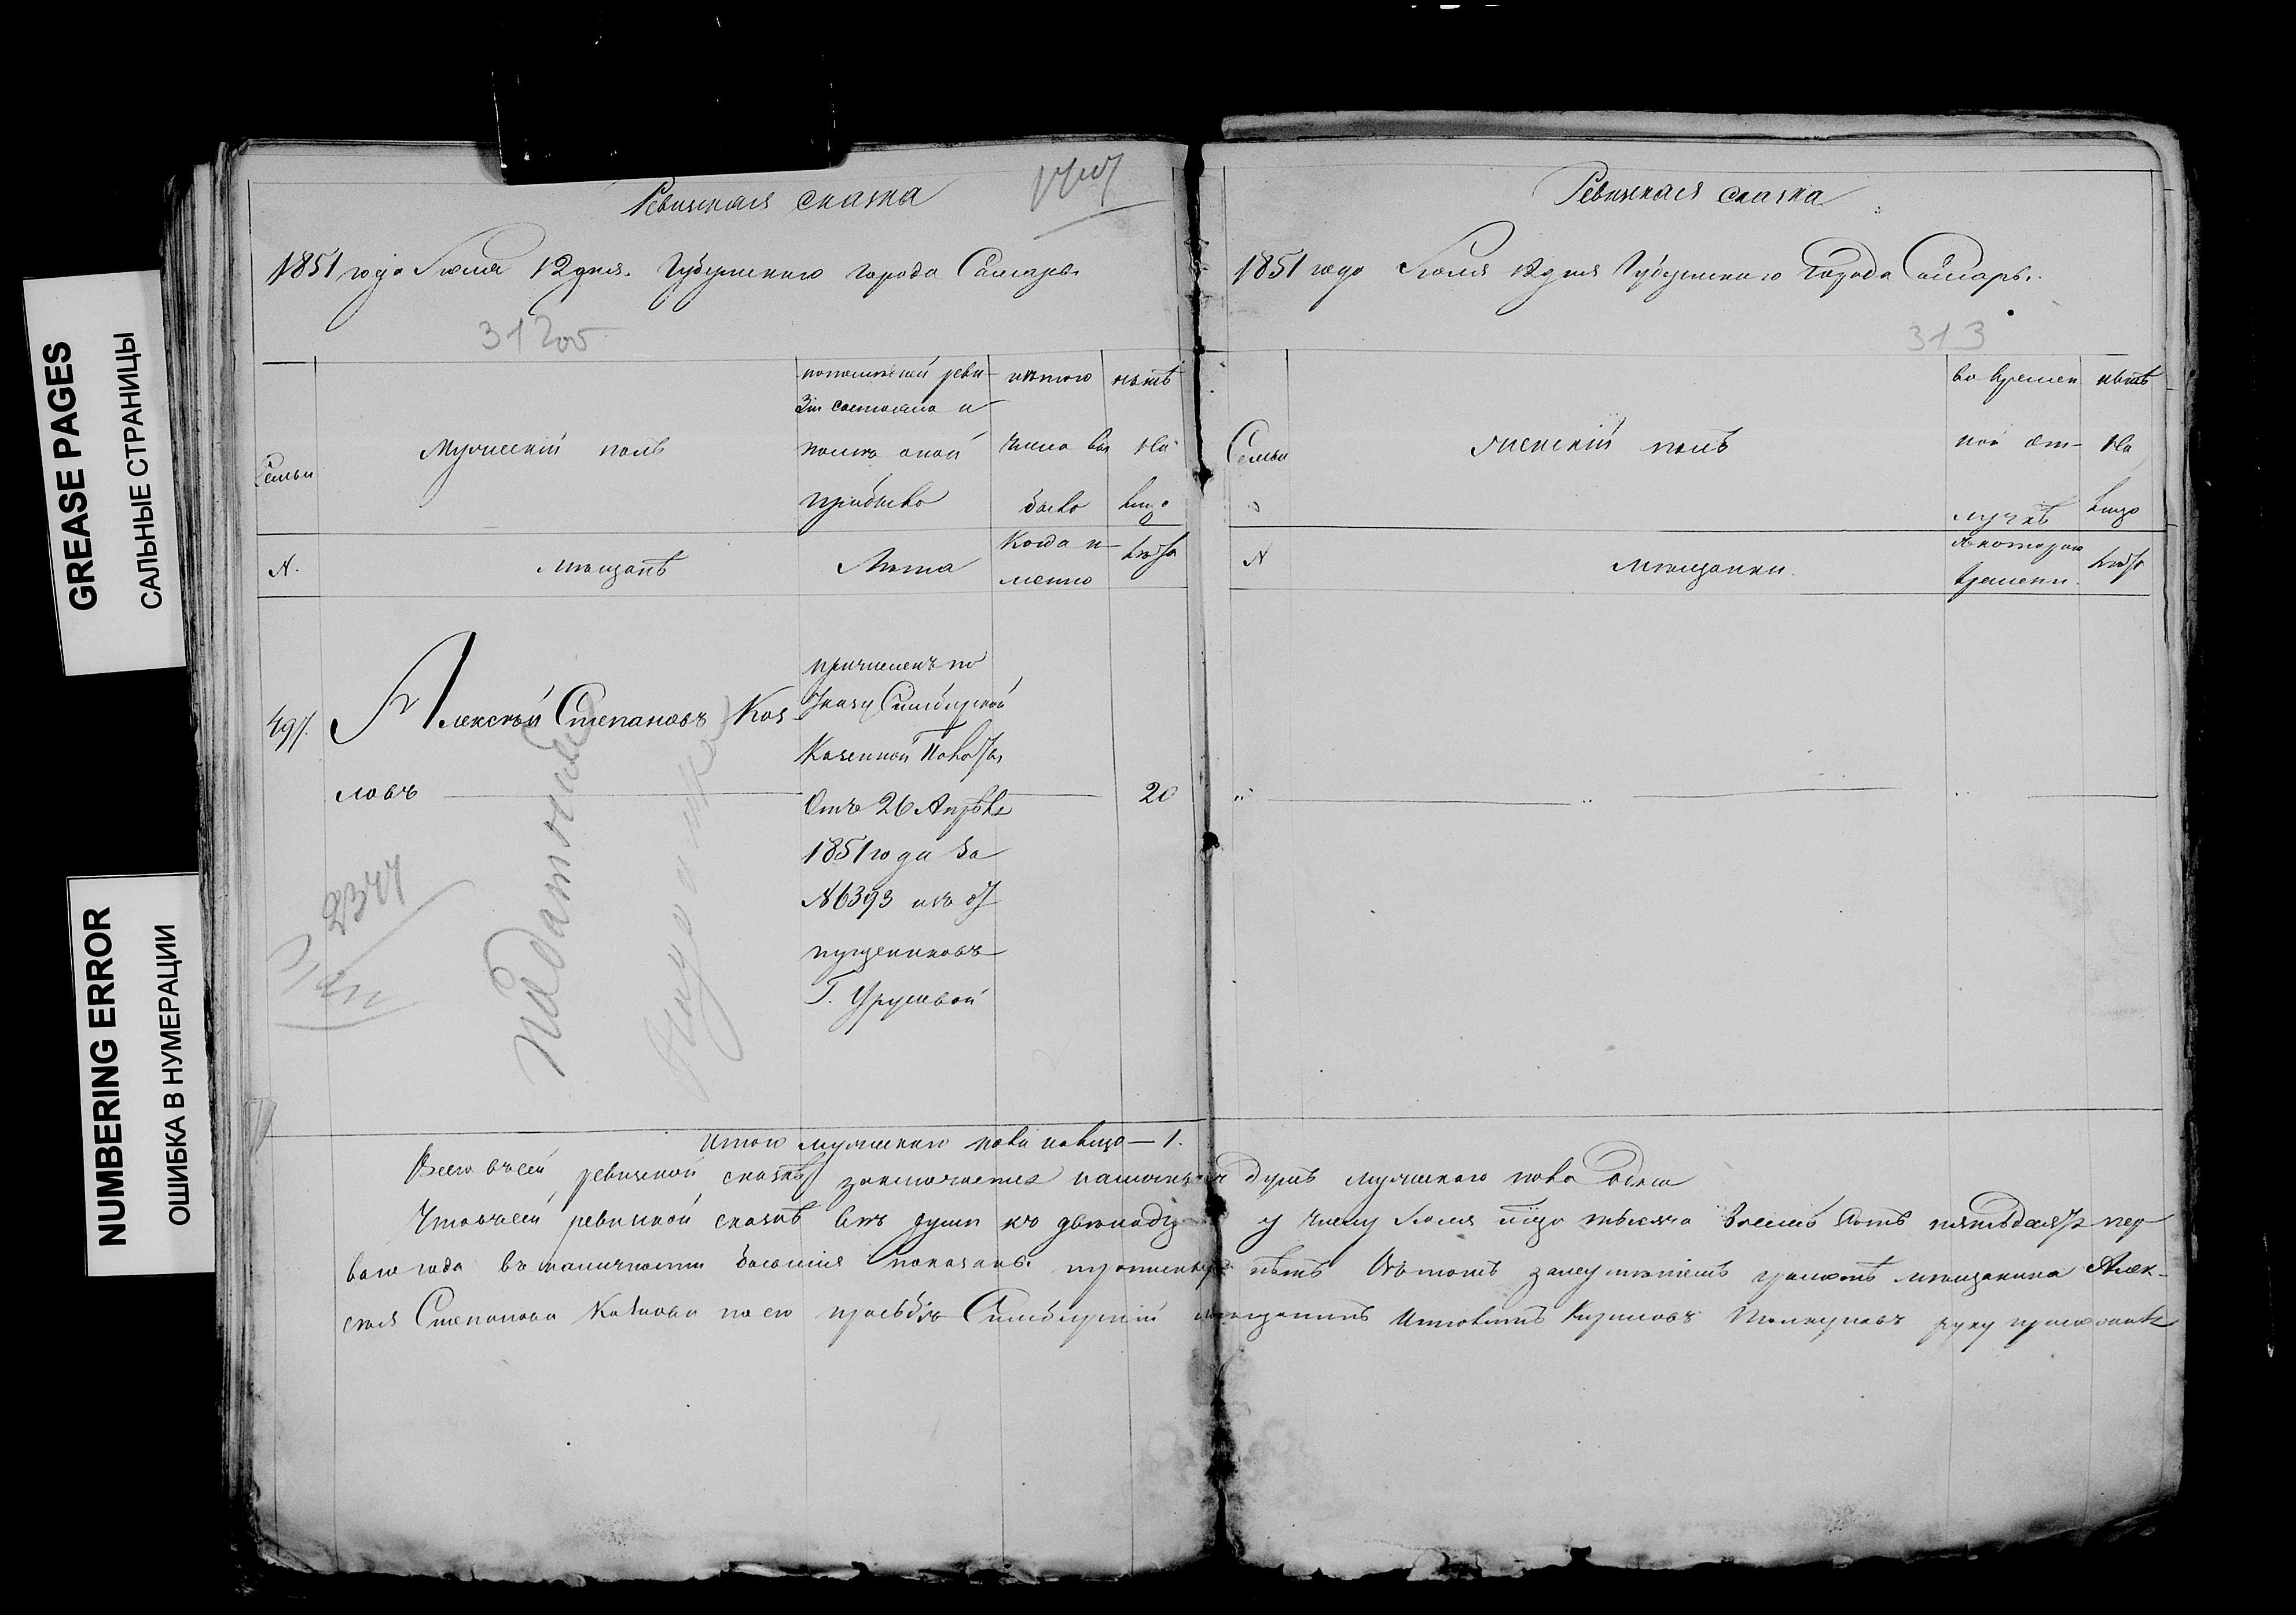 GREASE PAGES
САЛЬНЫЕ СТРАНИЦЫ
NUMBERING ERROR
ОШИБКА В НУМЕРАЦИИ
Ревизская сказка
1851 года Июля 12 дня. Губернскаго города Самары
312об
Семьи
Мужескій полъ
по последней реви-
зіи состояло и
после оной
прибыло
изъ того
числа вы
было
ныне
на
лицо
№.
Мещанъ
Лета
Когда и-
менно
Лета
497.
Алексей Степановъ Коз
ловъ
причисленъ по
Указу Симбирской
Казенной Палаты
Отъ 26 Апреля
1851 года за
№ 6393 изъ от
пущениковъ
Г.
20
2344
Податной
Итого мужескаго пола на лицо — 1.
Ревизская сказка
1851 года Июля 12 дня Губернскаго Города Самары.
313
Семьи
Женскій полъ
во времен
ной от-
лучкѣ
ныне
на
лицо
№
Мещанки.
Съ котораго
времени.
Лета
Всего въ сей ревизской сказкѣ заключается наличныхъ душъ мужескаго пола одна
Что въ сей ревизской сказкѣ всѣ души къ двенадца у числу Июля тысяча восемь сотъ пятьдесятъ пер
ваго года въ наличности бывшія показаны нѣтъ Въ томъ мещанина Алек-
сея Степанова Козлова по его прозьбѣ Симбирскій мещанинъ руку приложилъ